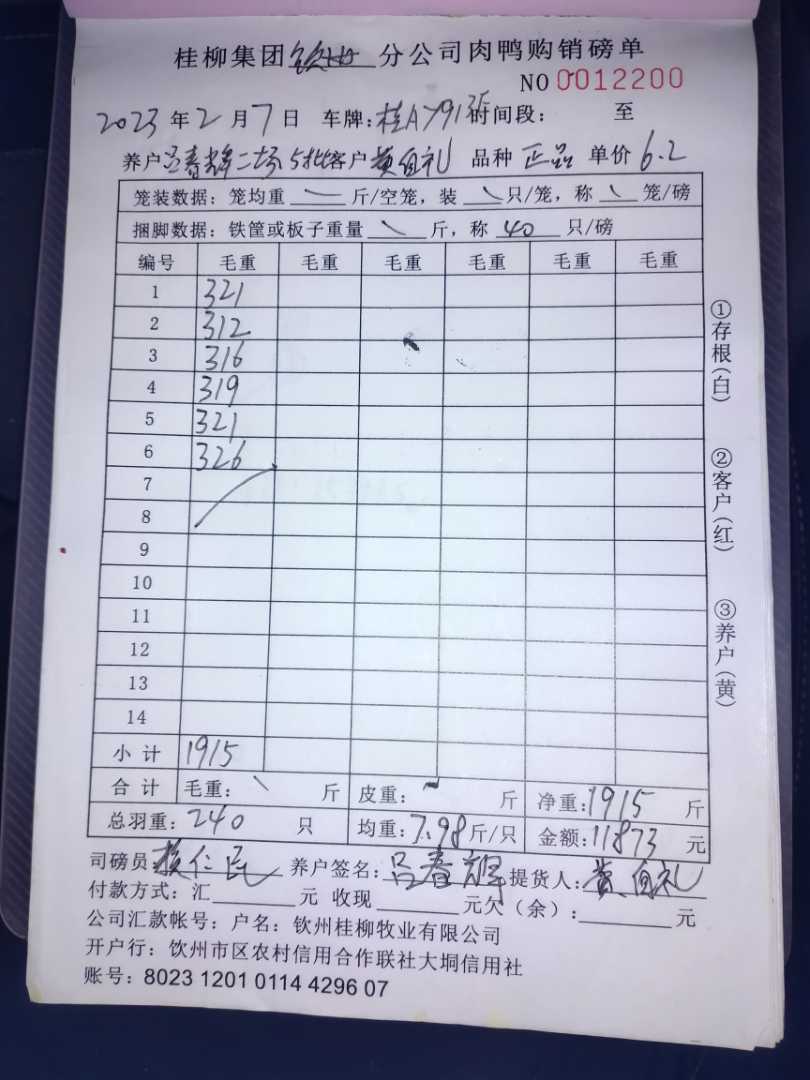 桂柳集团 钦州 分公司肉鸭购销磅单
NO 0012200
2023 年 2 月 7 日 车牌: 桂A 时间段: 至
养户 吕春辉二场5批 客户 黄自礼 品种 正品 单价 6.2
笼装数据: 笼均重 斤/空笼, 装 只/笼, 称 笼/磅
捆脚数据: 铁筐或板子重量 斤, 称 40 只/磅
编号 毛重 毛重 毛重 毛重 毛重 毛重
1 321
2 312
3 316
4 319
5 321
6 326
7
8
9
10
11
12
13
14
小计 1915
合计 毛重: 斤 皮重: 斤 净重: 1915 斤
总羽重: 240 只 均重: 7.98 斤/只 金额: 11873 元
司磅员 仁民 养户签名: 吕春辉 提货人: 黄自礼
付款方式: 汇 元 收现 元欠(余): 元
公司汇款帐号: 户名: 钦州桂柳牧业有限公司
开户行: 钦州市区农村信用合作联社大垌信用社
账号: 8023 1201 0114 4296 07
①存根(白)
②客户(红)
③养户(黄)